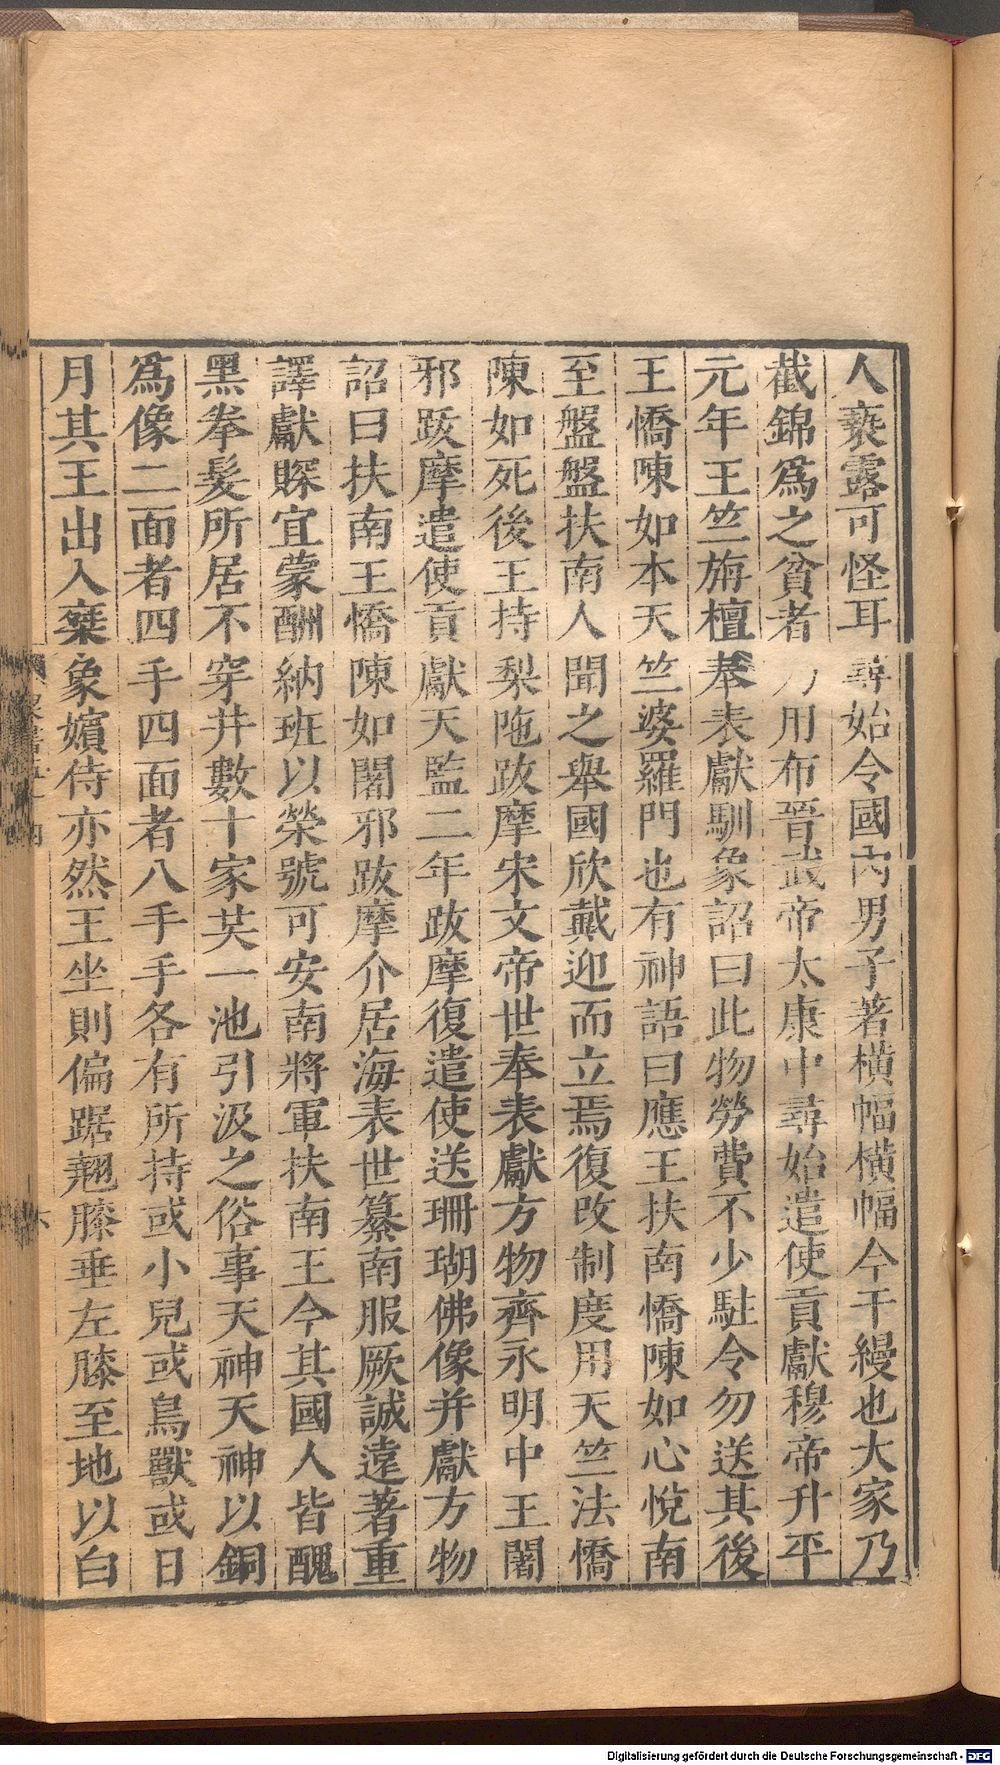 人褻露可怪耳尋始令國內男子著橫幅橫幅今干縵也大家乃
截錦爲之貧者乃用布晉武帝太康中尋始遣使貢獻穆帝升平
元年王竺旃檀奉表獻馴象詔曰此物勞費不少駐令勿送其後
王憍陳如本天竺婆羅門也有神語曰應王扶南憍陳如心悅南
至盤盤扶南人聞之舉國欣戴迎而立焉復改制度用天竺法憍
陳如死後王持梨陁跋摩宋文帝世奉表獻方物齊永明中王闍
邪跋摩遣使貢獻天監二年跋摩復遣使送珊瑚佛像并獻方物
詔曰扶南王憍陳如闍邪跋摩介居海表世纂南服厥誠遠著重
譯獻賝宜蒙酬納班以榮號可安南將軍扶南王今其國人皆醜
黑拳髮所居不穿井數十家共一池引汲之俗事天神天神以銅
爲像二面者四手四面者八手手各有所持或小兒或鳥獸或日
月其王出入椉象嬪侍亦然王坐則偏踞翹膝垂左膝至地以白
Digitalisierung gefördert durch die Deutsche Forschungsgemeinschaft - DFG